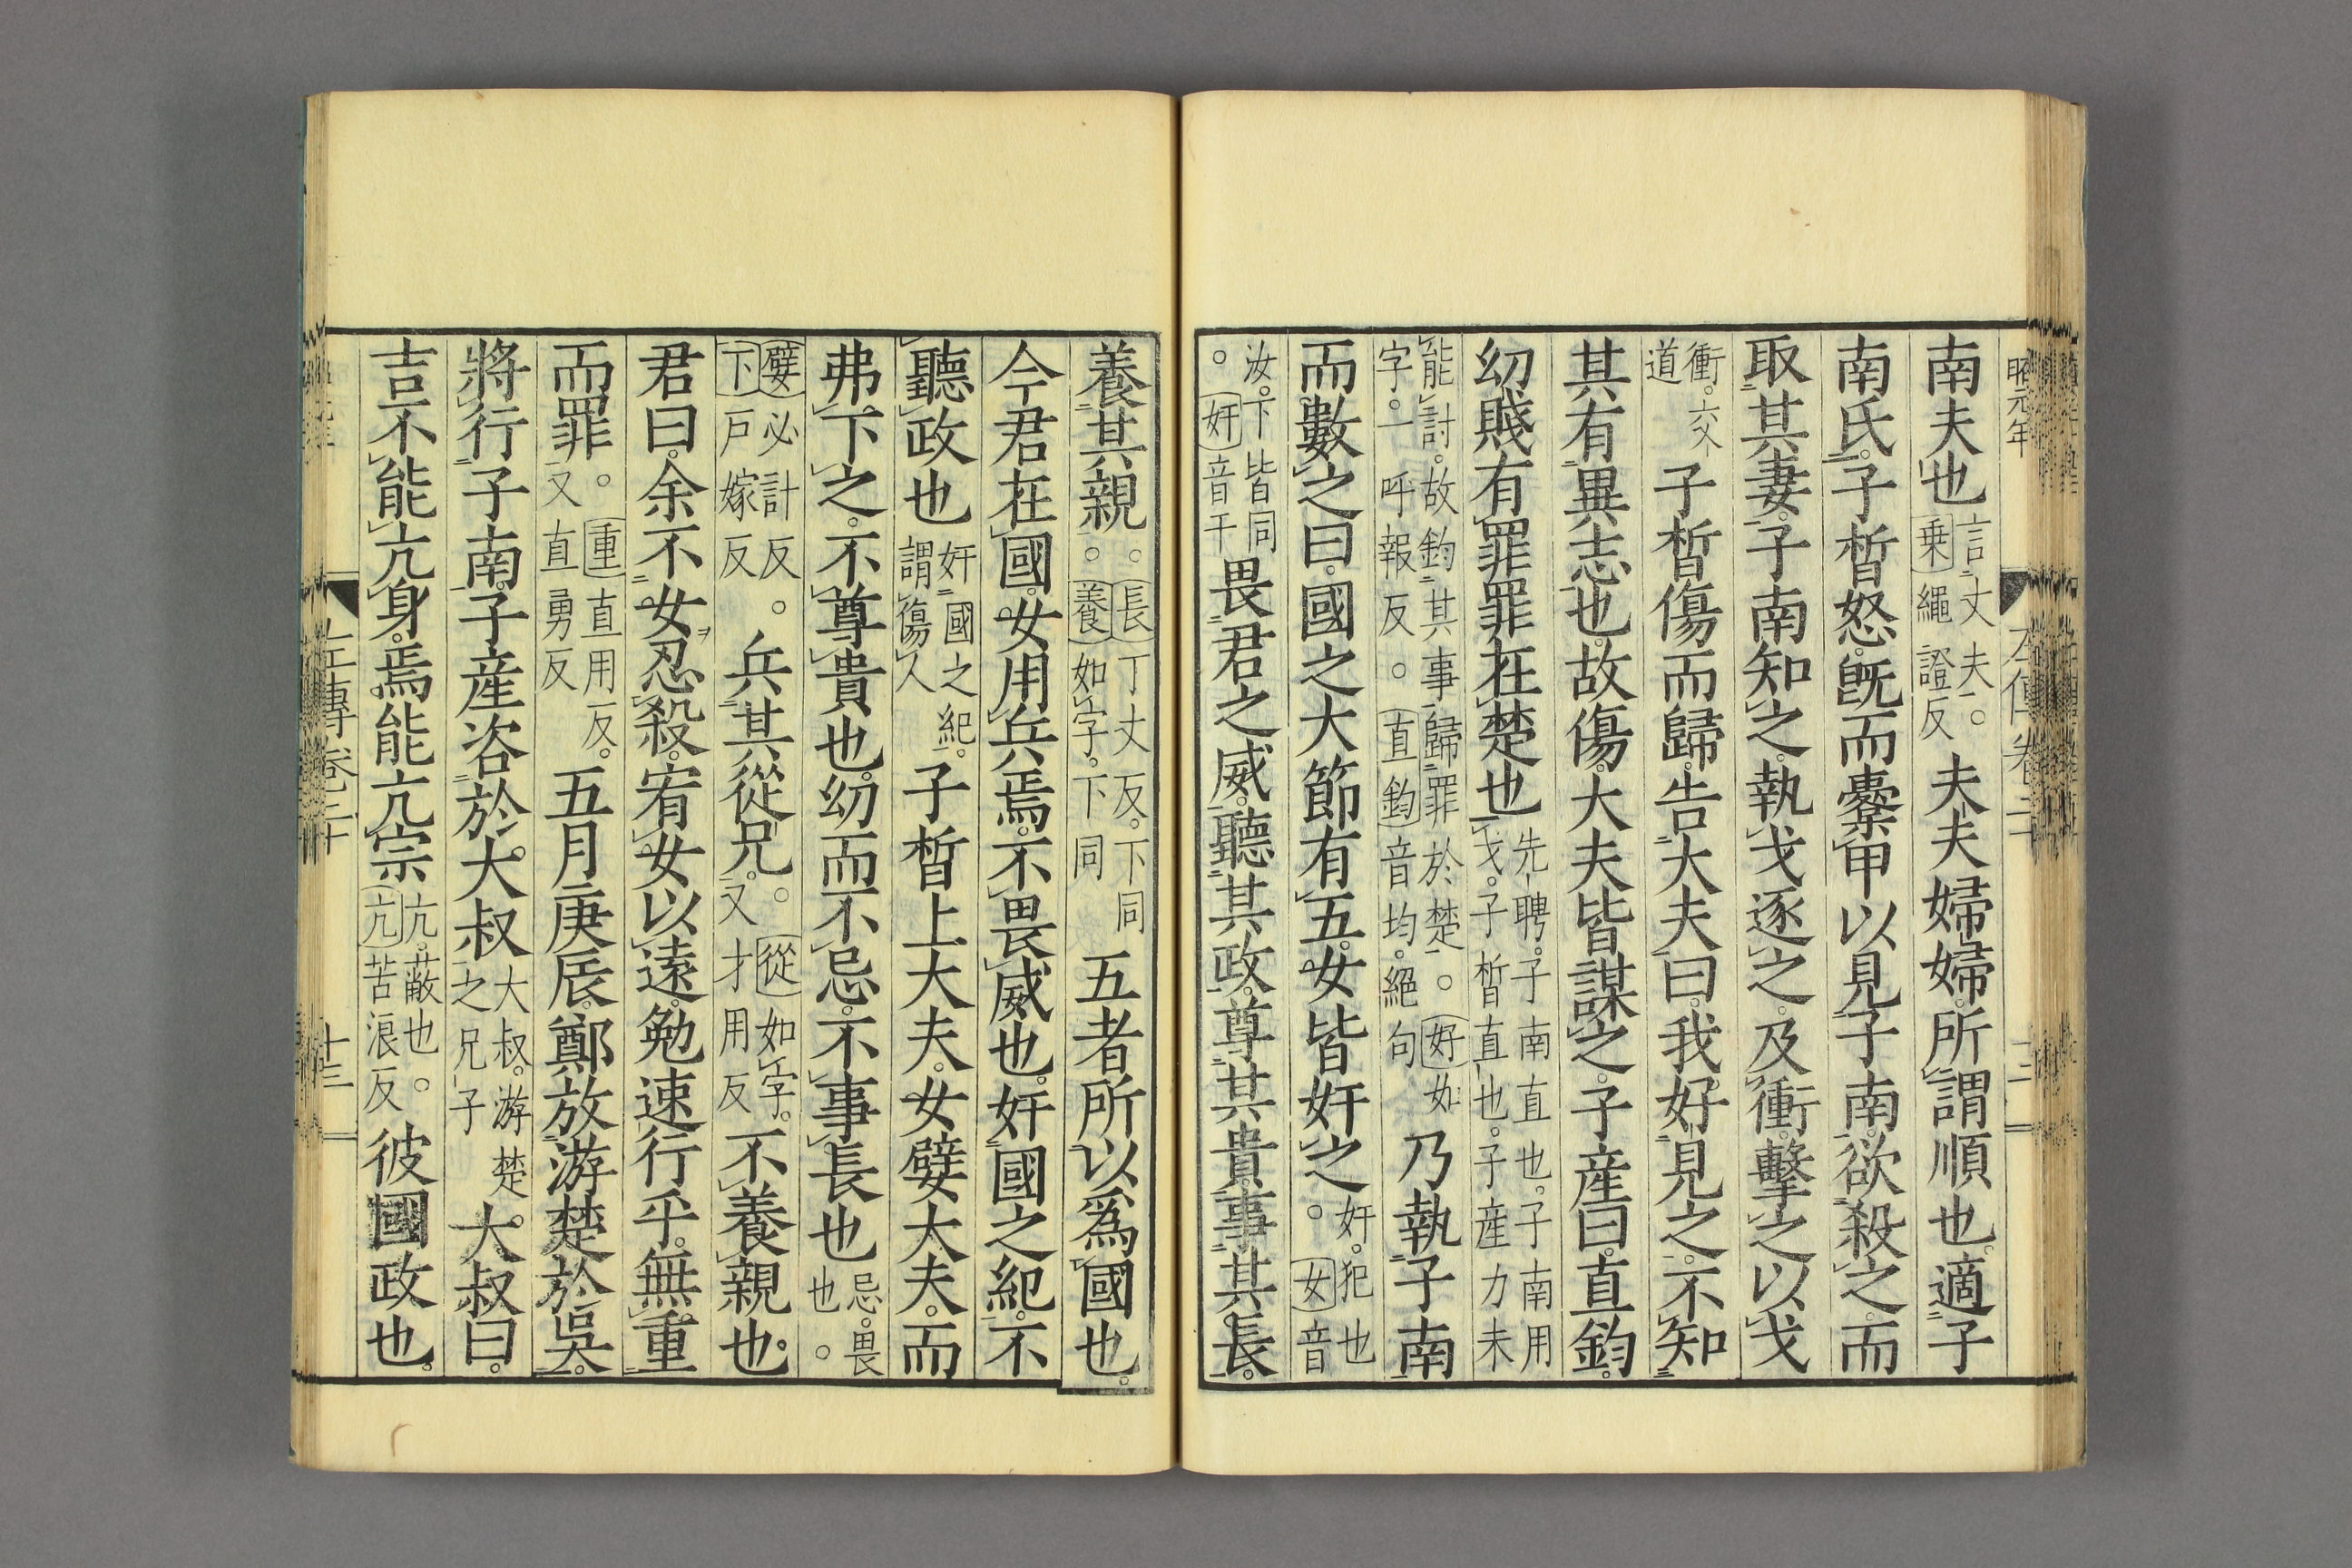 昭元年
南夫也言丈夫。乗繩證反夫夫婦婦。所謂順也。適子
南氏。子皙怒。既而櫜甲以見子南。欲殺之。而
取其妻。子南知之。執戈逐之。及衝。擊之以戈。
衝。交道子皙傷而歸。告大夫曰。我好見之。不知
其有異志也。故傷。大夫皆謀之。子産曰。直鈞。
幼賤有罪。罪在楚也先聘。子南直也。子南用戈。子皙直也。子産力未
能討。故鈞其事。歸罪於楚。。好如字。一呼報反。。直鈞音均。絕句乃執子南
而數之曰。國之大節有五。女皆奸之。奸。犯也。女音
汝。下皆同。奸音干畏君之威。聽其政。尊其貴。事其長。
養其親。。長丁丈反。下同。養如字。下同五者所以爲國也。
今君在國。女用兵焉。不畏威也。奸國之紀。不
聽政也奸國之紀。謂傷人子皙上大夫。女嬖大夫。而
弗下之。不尊貴也。幼而不忌。不事長也忌。畏也。。
嬖必計反。下戸嫁反兵其從兄。。從如字。又才用反不養親也。
君曰。余不女忍殺。宥女以遠。勉速行乎。無重
而罪。。重直用反。又直勇反五月庚辰。鄭放游楚於吳。
將行子南。子産咨於大叔大叔。游楚之兄子。大叔曰。
吉不能亢身。焉能亢宗亢。蔽也。亢苦浪反彼國政也。
左傳卷二十
十三